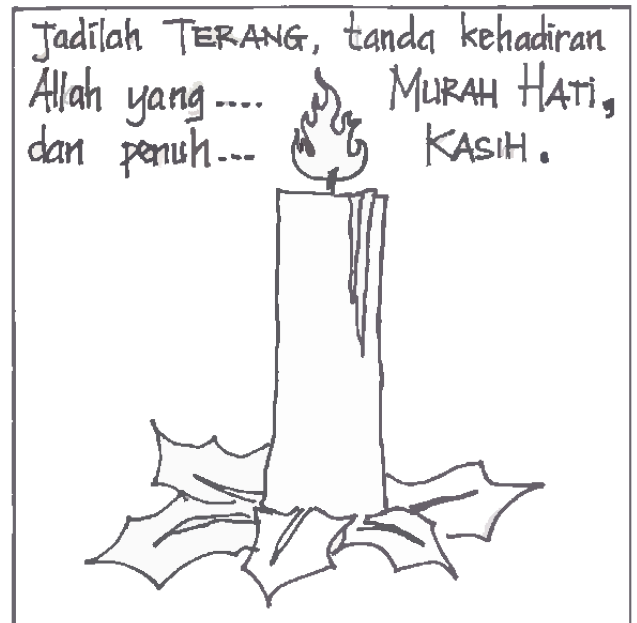 Jadilah TERANG, tanda kehadiran
Allah yang .... MURAH HATi,
dan penuh --- KASIH.